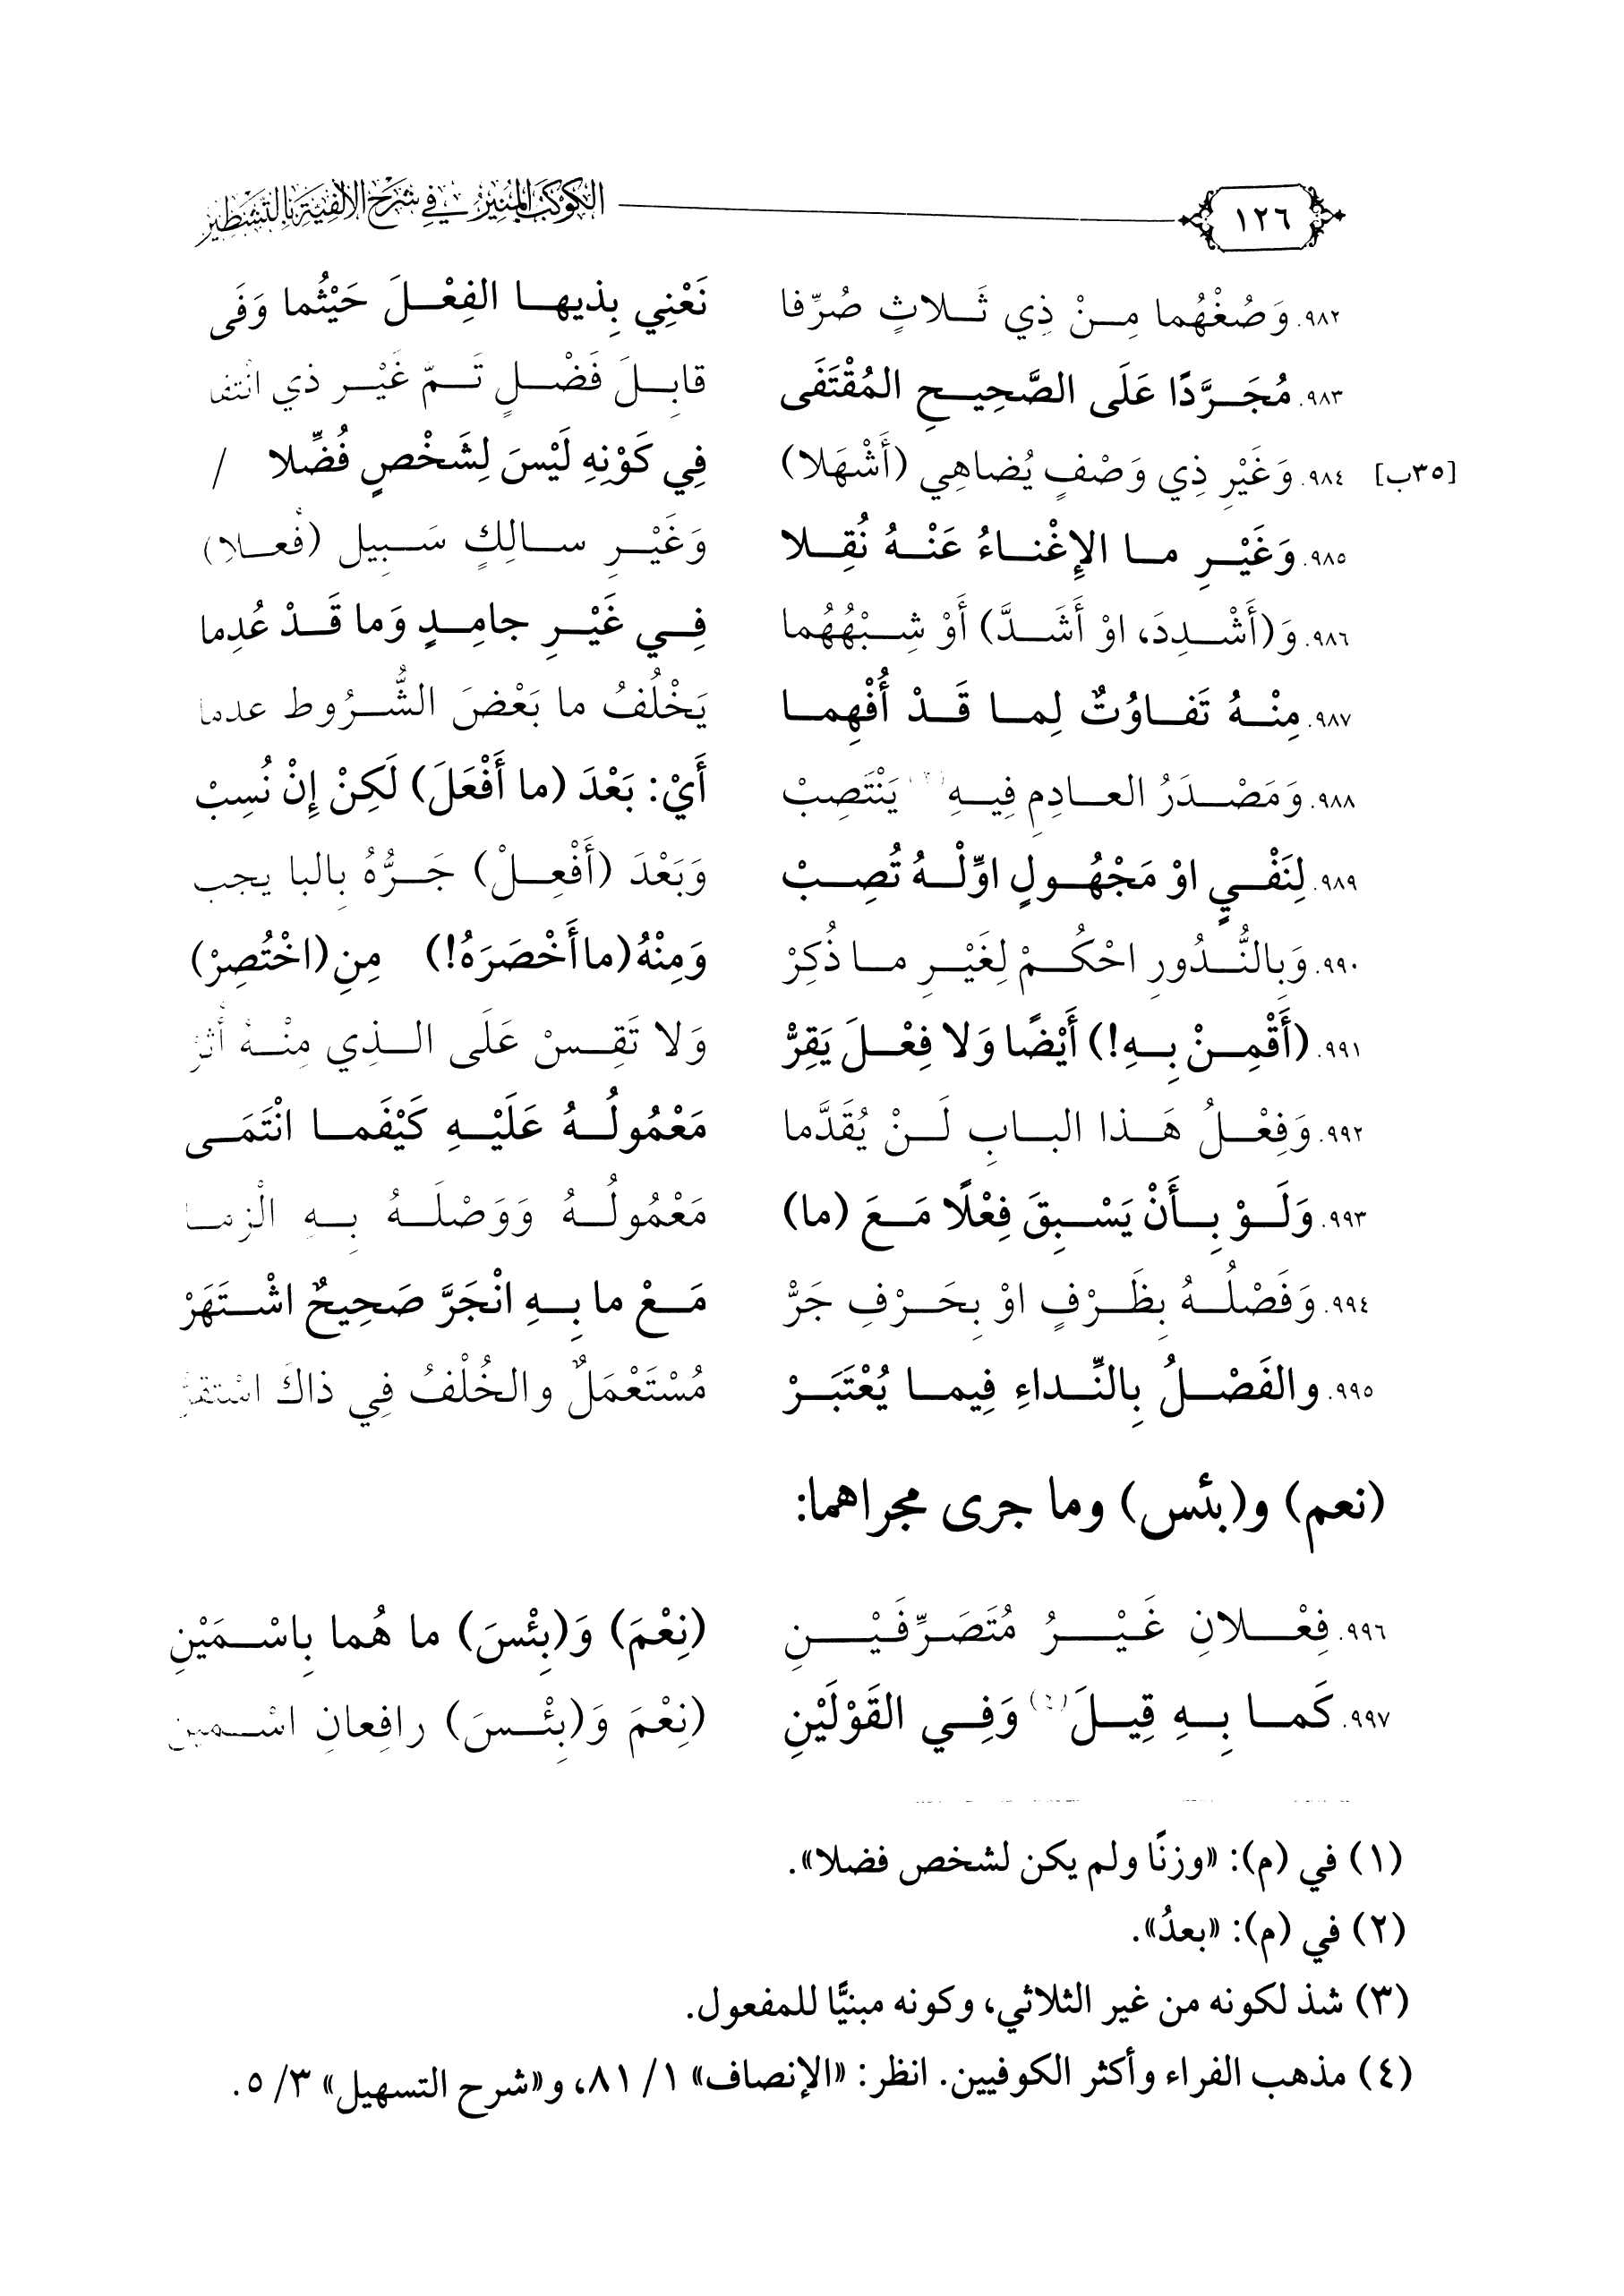 ١٢٦ الكوكب المنير في شرح الألفية بالتشطير
٩٨٢. وَصُغْهُما مِـنْ ذِي ثَـلاثٍ صُرِّفا نَعْنِي بِذيهـا الفِعْـلَ حَيْثُما وَفَى
٩٨٣. مُجَـرَّدًا عَلَى الصَّحِيـحِ المُقْتَفَى قابِـلَ فَضْـلٍ تَـمَّ غَيْـر ذي انْتفا
[٣٥ب] ٩٨٤. وَغَيْرِ ذِي وَصْفٍ يُضاهِي (أَشْهَلا) فِي كَوْنِهِ لَيْسَ لِشَخْصٍ فُضِّلا /
٩٨٥. وَغَيْـرِ مـا الإِغْنـاءُ عَنْـهُ نُقِـلا وَغَيْـرِ سـالِكٍ سَـبِيل (فُعـلا)
٩٨٦. وَ(أَشْـدِدَ، اوْ أَشَـدَّ) أَوْ شِـبْهُهُما فِـي غَيْـرِ جامِـدٍ وَما قَـدْ عُدِما
٩٨٧. مِنْـهُ تَفـاوُتٌ لِمـا قَـدْ أُفْهِمـا يَخْلُفُ ما بَعْضَ الشُّـرُوط عدما
٩٨٨. وَمَصْـدَرُ العـادِمِ فِيـهِ(٢) يَنْتَصِبْ أَيْ: بَعْدَ (ما أَفْعَلَ) لَكِنْ إِنْ نُسِبْ
٩٨٩. لِنَفْـيٍ اوْ مَجْهُـولٍ اوِّلْـهُ تُصِـبْ وَبَعْدَ (أَفْعِـلْ) جَـرُّهُ بِالبا يجب
٩٩٠. وَبِالنُّـدُورِ احْكُـمْ لِغَيْـرِ مـا ذُكِرْ وَمِنْهُ (ما أَخْصَرَهُ!) مِنِ (اخْتُصِرْ)
٩٩١. (أَقْمِـنْ بِـهِ!) أَيْضًا وَلا فِعْـلَ يَقِرُّ وَلا تَقِـسْ عَلَى الـذِي مِنْـهُ أُثِرْ
٩٩٢. وَفِعْـلُ هَـذا البـابِ لَـنْ يُقَدَّما مَعْمُولُـهُ عَلَيْـهِ كَيْفَمـا انْتَمَـى
٩٩٣. وَلَـوْ بِـأَنْ يَسْـبِقَ فِعْلًا مَـعَ (ما) مَعْمُولُـهُ وَوَصْلَـهُ بِـهِ الْزِمـا
٩٩٤. وَفَصْلُـهُ بِظَـرْفٍ اوْ بِحَـرْفِ جَرّْ مَـعْ ما بِـهِ انْجَرَّ صَحِيحٌ اشْـتَهَرْ
٩٩٥. والفَصْـلُ بِالنِّـداءِ فِيمـا يُعْتَبَـرْ مُسْتَعْمَلٌ والخُلْفُ فِي ذاكَ اسْتقرّ
(نعم) و(بئس) وما جرى مجراهما:
٩٩٦. فِعْـلانِ غَيْـرُ مُتَصَـرِّفَيْـنِ (نِعْمَ) وَ(بِئْسَ) ما هُما بِاسْـمَيْنِ
٩٩٧. كَمـا بِـهِ قِيـلَ(٤) وَفِـي القَوْلَيْنِ (نِعْمَ وَ(بِئْـسَ) رافِعانِ اسْـمين
(١) في (م): «وزنًا ولم يكن لشخص فضلا».
(٢) في (م): «بعدُ».
(٣) شذ لكونه من غير الثلاثي، وكونه مبنيًّا للمفعول.
(٤) مذهب الفراء وأكثر الكوفيين. انظر: «الإنصاف» ١/ ٨١، و«شرح التسهيل» ٣/ ٥.